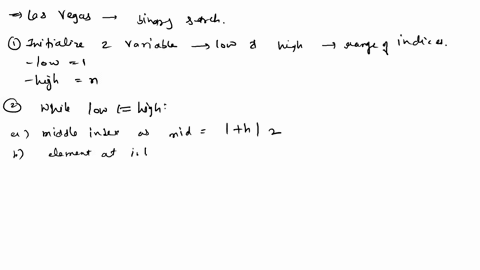 ⇒ Las Vegas → binary search.
① Initialize 2 variable → low & high → range of indices.
- low = 1
- high = n
② While low <= high:
a) middle index as mid = l+h| 2
b) element at i.l